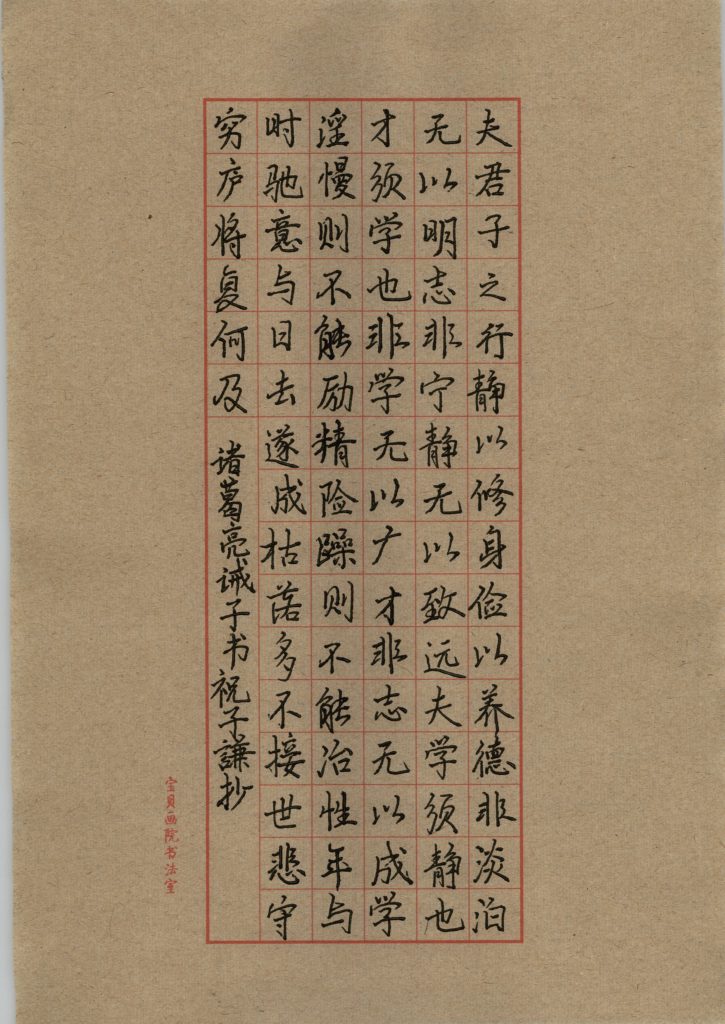 夫君子之行静以修身俭以养德非淡泊
无以明志非宁静无以致远夫学须静也
才须学也非学无以广才非志无以成学
淫慢则不能励精险躁则不能冶性年与
时驰意与日去遂成枯落多不接世悲守
穷庐将复何及
诸葛亮诫子书祝子謙抄
宝贝画院书法室